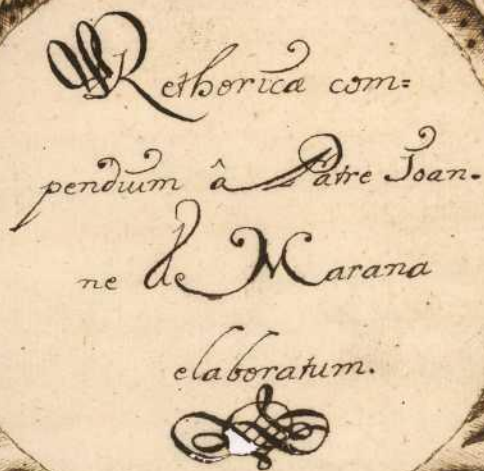 Rethoricæ com=
pendium â Patre Joan-
ne de Marana
elaboratum.